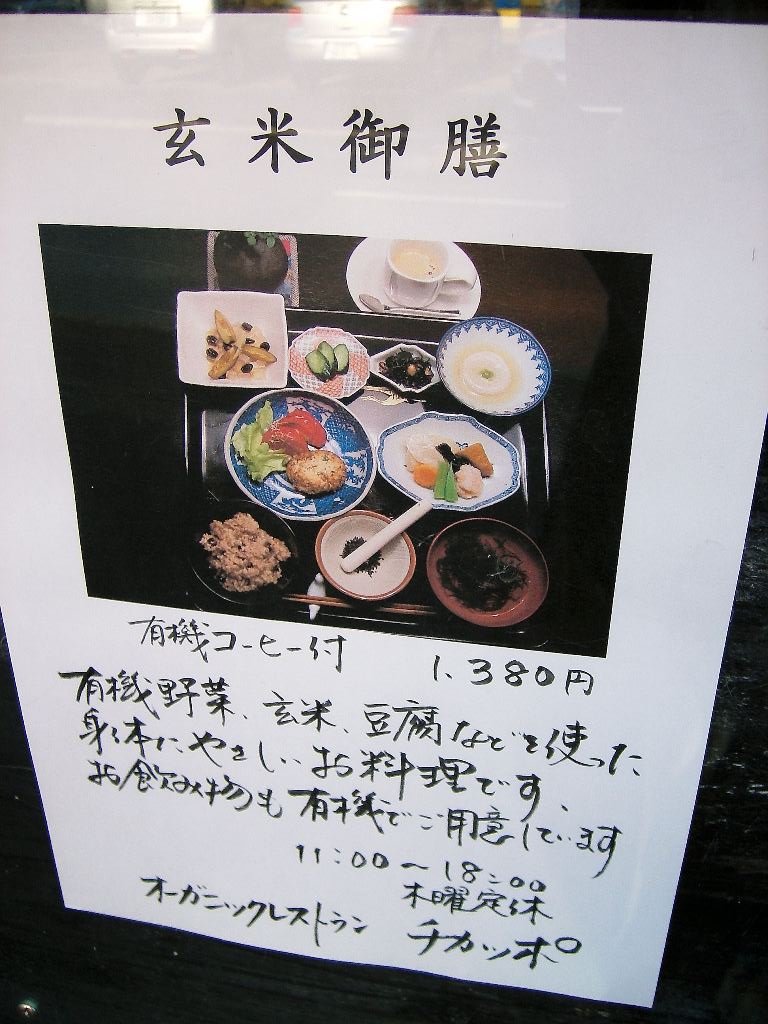 玄米御膳
有機コーヒー付 1.380円
有機野菜、玄米、豆腐などを使った
身体にやさしいお料理です、
お飲み物も有機でご用意しています
11:00～18:00
木曜定休
オーガニックレストラン チカッポ